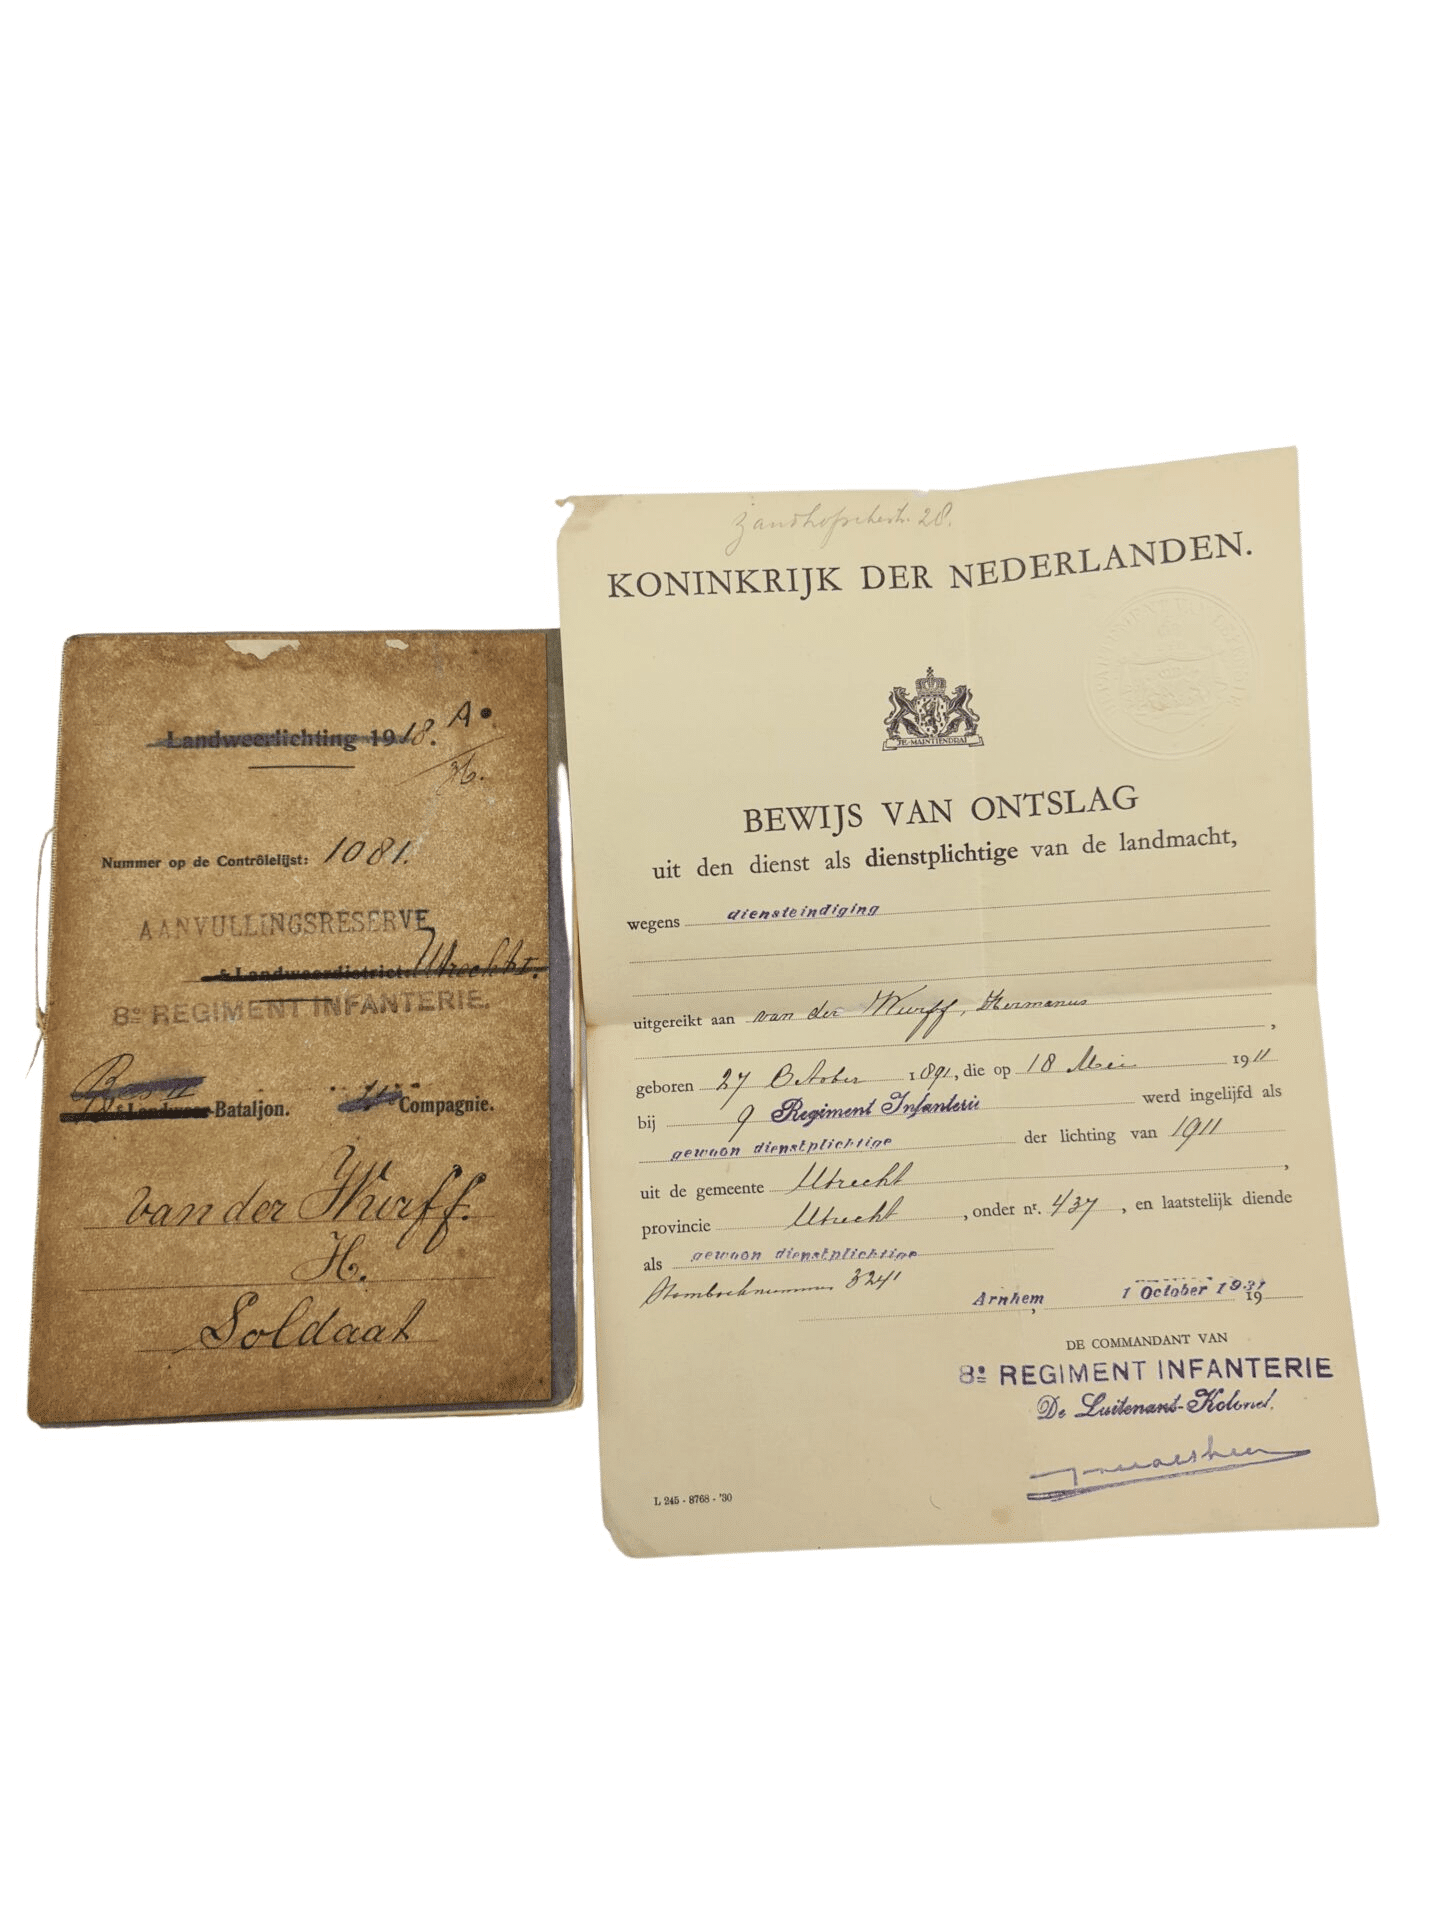 Landweerlichting 1918. A.
36.
Nummer op de Contrôlelijst: 1081.
AANVULLINGSRESERVE
e Landweerdistrict: Utrecht I.
8e REGIMENT INFANTERIE.
Res II
e Landweer-Bataljon. 4e Compagnie.
van der Wurff.
H.
Soldaat
28.
KONINKRIJK DER NEDERLANDEN.
JE MAINTIENDRAI
BEWIJS VAN ONTSLAG
uit den dienst als dienstplichtige van de landmacht,
wegens diensteindiging
uitgereikt aan van der Wurff, Hermanus
,
geboren 27 October 1891, die op 18 Mei 1911
bij 9 Regiment Infanterie werd ingelijfd als
gewoon dienstplichtige der lichting van 1911
uit de gemeente Utrecht,
provincie Utrecht, onder nr. 437, en laatstelijk diende
als gewoon dienstplichtige
Stamboeknummer 3241
Arnhem, 1 October 1931 19
DE COMMANDANT VAN
8e REGIMENT INFANTERIE
De Luitenant-Kolonel.
L 245 - 8768 - '30